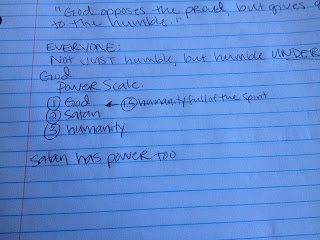 "God opposes the proud, but gives g
to the humble."
EVERYONE:
NOT JUST humble, but humble UNDER
God
Power Scale:
① God ← ①.5 humanity full of the Spirit
② Satan
③ humanity
Satan has power too